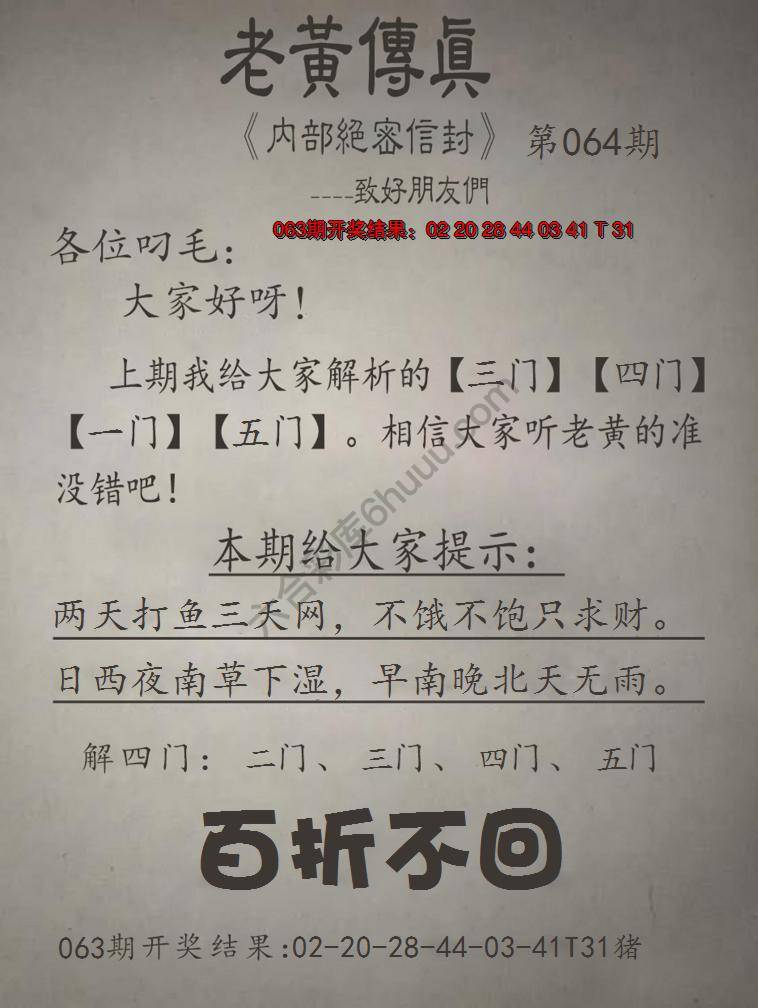 老黃傳真
《内部絕密信封》 第064期
----致好朋友們
063期开奖结果：02 20 28 44 03 41 T 31
各位叼毛：
大家好呀！
上期我给大家解析的【三门】【四门】
【一门】【五门】。相信大家听老黄的准
没错吧！
本期给大家提示：
两天打鱼三天网，不饿不饱只求财。
日西夜南草下湿，早南晚北天无雨。
解四门：二门、三门、四门、五门
百折不回
063期开奖结果:02-20-28-44-03-41T31猪
六合彩库6huuu.com